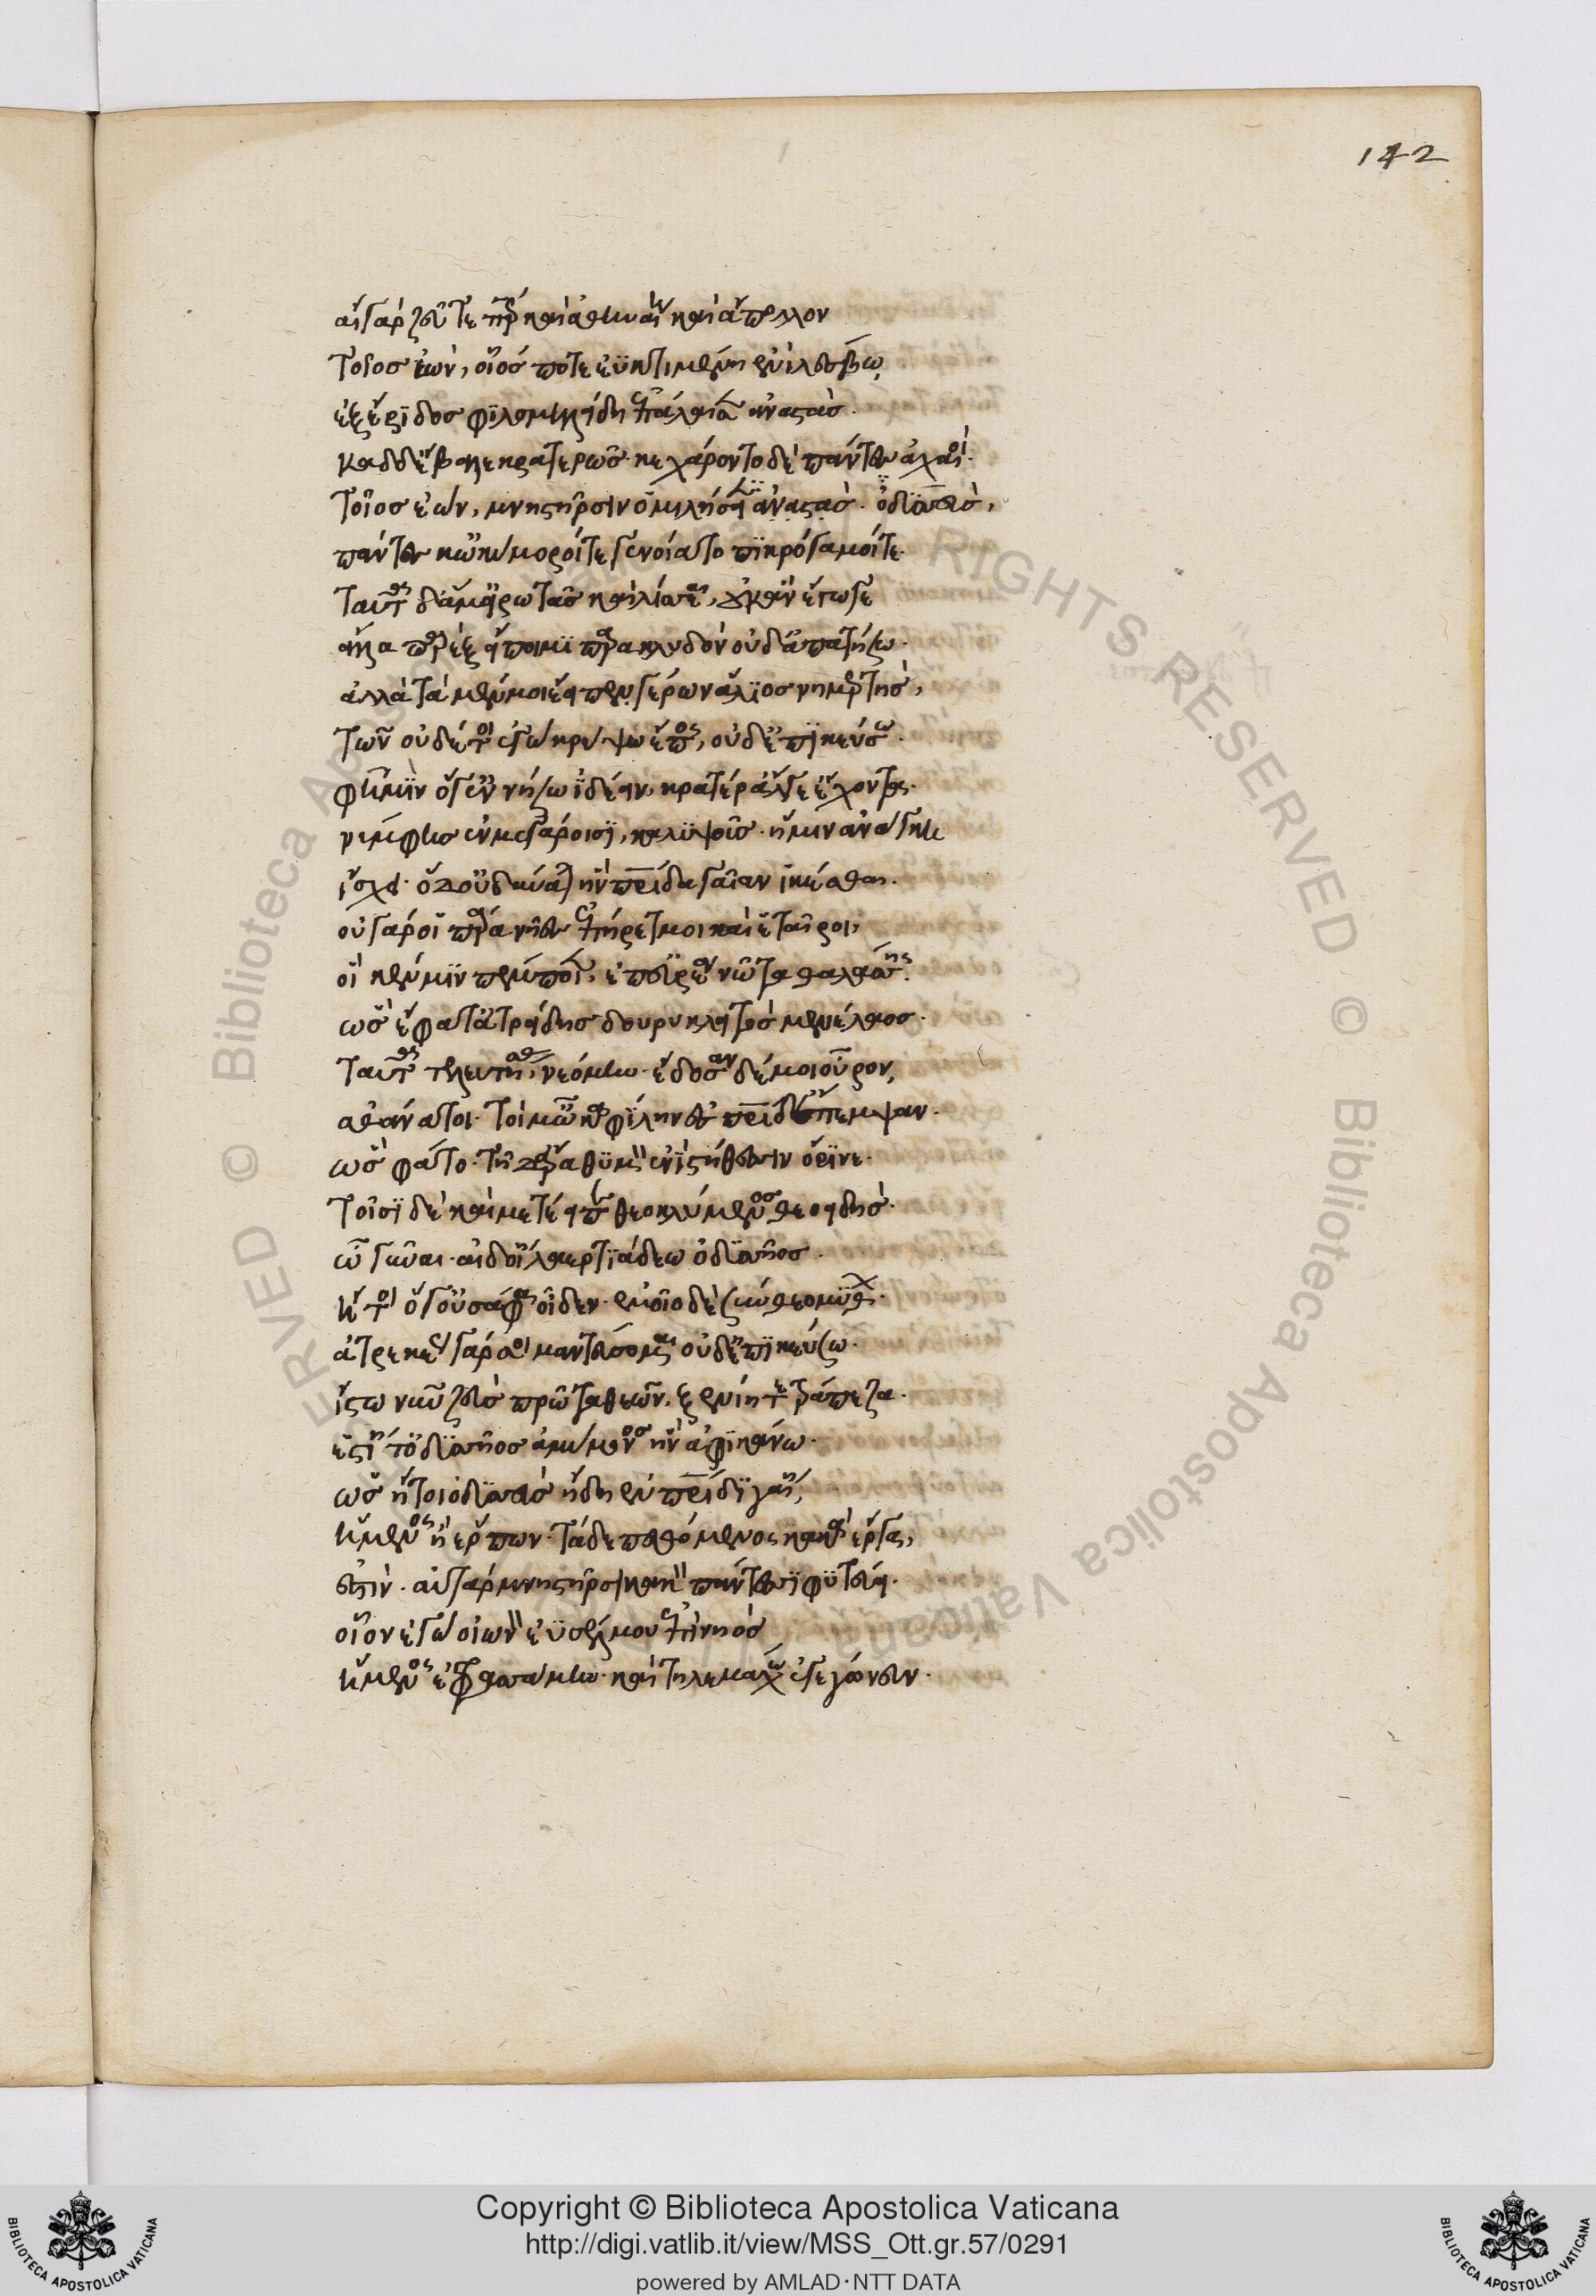 142
αἲ γὰρ ζεῦ τε πάτερ καὶ ἀθηναίη καὶ ἄπολλον
τοῖος ἐὼν, οἷός ποτε ἐϋκτιμένη ἐνὶ λέσβω
ἐξ ἔριδος φιλομηλείδη ἐπάλαισεν ἀναστὰς.
καδδέβαλε κρατερῶς. κεχάροντο δὲ πάντες ἀχαιοὶ.
τοῖος ἐὼν, μνηστῆρσιν ὁμιλήσει ὀδϋσσεὺς,
πάντες κὠκύμοροί τε γενοίατο πϊκρόγαμοί τε.
ταῦτα δ' ἅμ' εἰρωτᾶς καὶ λίσσεαι, οὐκ ἂν ἔγωγε
ἄλλα παρὲξ εἴποιμϊ παρακλιδὸν οὐδ' ἀπατήσω.
ἀλλὰ τὰ μέν μοι ἔειπε γέρων ἅλϊος νημερτὴς,
τῶν οὐδέν τοι ἐγὼ κρύψω ἔπος, οὐδ' ἐπϊκεύσω.
φῆ μϊν ὅγ' ἐν νήσω ἰδέειν κρατέρ' ἄλγε' ἔχοντα.
νύμφης ἐν μεγάροισϊ, καλϋψοῦς. ἥ μιν ἀνάγκη
ἴσχει. ὁ δ' οὐ δύναται ἣν πατρίδα γαῖαν ἱκέσθαι.
οὐ γάρ οἱ πάρα νῆες ἐπήρετμοι καὶ ἑταῖροι,
οἵ κέν μϊν πέμποιεν, ἐπ' εὐρέα νῶτα θαλάσσης.
ὣς ἔφατ' ἀτρείδης δουρικλειτὸς μενέλαος.
ταῦτα τελευτήσας νεόμην. ἔδοσαν δέ μοι οὖρον,
ἀθάνατοι. τοί μ' ὦκα φίλην ἐς πατρίδ' ἔπεμψαν.
ὣς φάτο. τῇ δ' ἄρα θϋμὸν ἐνὶ στήθεσσιν ὄρϊνε.
τοῖσϊ δὲ καὶ μετέειπε θεοκλύμενος θεοειδὴς.
ὦ γύναι αἰδοίη λαερτϊάδεω ὀδϋσῆος.
ἤ τοι ὅγ' οὐ σάφα οἶδεν. ἐμοῖο δὲ σύνθεο μῦθον.
ἀτρεκὲς γάρ σοι μαντεύσομαι οὐδ' ἐπϊκεύσω.
ἴστω νῦν ζεὺς πρῶτα θεῶν. ξενίη τε τράπεζα.
ἱστίη τ' ὀδϋσῆος ἀμύμονος ἣν ἀφϊκάνω.
ὡς ἤτοι ὀδϋσσεὺς ἤδη ἐν πατρίδϊ γαίη,
ἥμενος ἢ ἕρπων. τάδε πευθόμενος κακὰ ἔργα,
ἐστὶν. ἀτὰρ μνηστῆρσϊ κακὸν πάντεσσϊ φϋτεύει.
οἷον ἐγὼν οἰωνὸν ἐϋσσέλμου ἐπὶ νηὸς
ἥμενος ἐφρασάμην. καὶ τηλεμάχω ἐγεγώνευν.
Copyright © Biblioteca Apostolica Vaticana
http://digi.vatlib.it/view/MSS_Ott.gr.57/0291
powered by AMLAD·NTT DATA